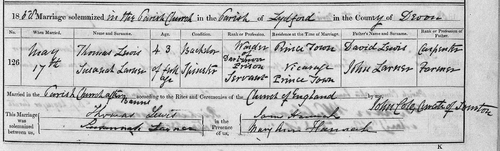 1860 Marriage solemnized in the Parish Church in the Parish of Lydford in the County of Devon
No. When Married. Name and Surname. Age. Condition. Rank or Profession. Residence at the Time of Marriage. Father's Name and Surname. Rank or Profession of Father.
126 May 17th Thomas Lewis 43 Bachelor Warder Dartmoor Prison Prince Town David Lewis Carpenter
Susanah Larner of full age Spinster Servant Vicarage Prince Town John Larner Farmer
Married in the Parish Church according to the Rites and Ceremonies of the Church of England after Banns by me,
John Cole, Curate of
This Marriage was solemnized between us, Thomas Lewis
Susannah Larner
in the Presence of us, Hannah
Mary Ann Hannah
K